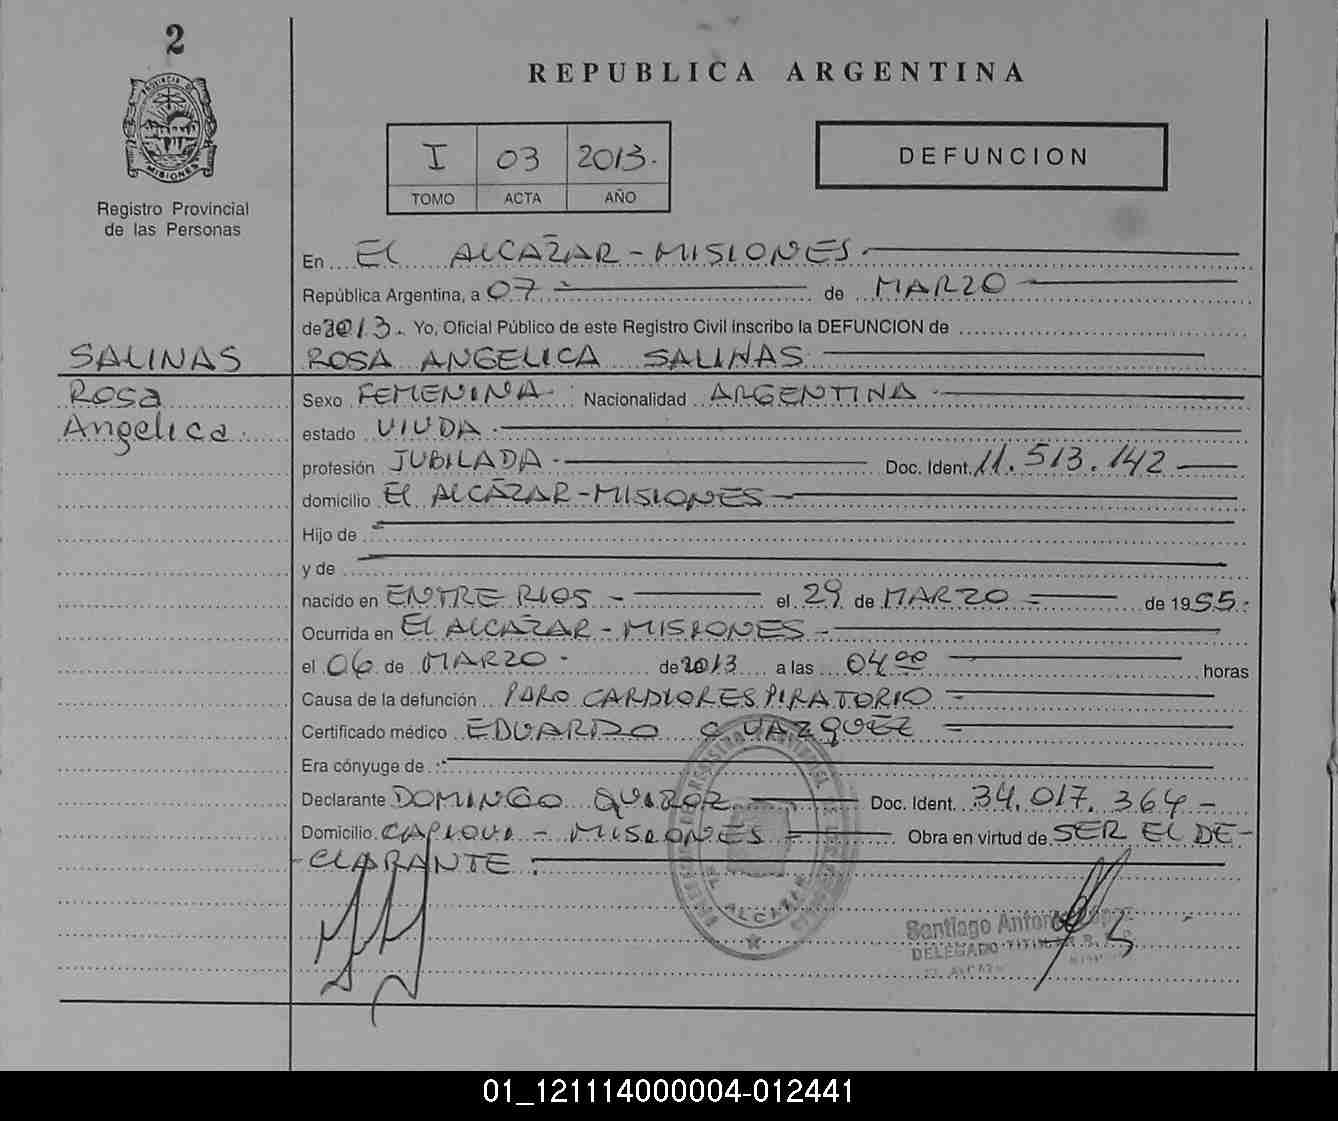 2
PROVINCIA DE
MISIONES
Registro Provincial
de las Personas
REPUBLICA ARGENTINA
I 03 2013.
TOMO ACTA AÑO
DEFUNCION
En EL ALCAZAR - MISIONES
República Argentina, a 07 de MARZO
de 2013. Yo, Oficial Público de este Registro Civil inscribo la DEFUNCION de
SALINAS
Rosa
Angelica.
ROSA ANGELICA SALINAS
Sexo FEMENINA Nacionalidad ARGENTINA
estado VIUDA
profesión JUBILADA Doc. Ident. 11.513.142
domicilio EL ALCAZAR - MISIONES
Hijo de
y de
nacido en ENTRE RIOS - el 29 de MARZO de 1955.
Ocurrida en EL ALCAZAR - MISIONES
el 06 de MARZO de 2013 a las 04 00 horas
Causa de la defunción PARO CARDIORESPIRATORIO
Certificado médico EDUARDO C VAZQUEZ
Era cónyuge de
Declarante DOMINGO Doc. Ident. 34.017.364 -
Domicilio CAPIOVI - MISIONES Obra en virtud de SER EL DE-
CLARANTE.
EL ALCAZAR
Santiago Antonio
DELEGADO TITULAR
01_121114000004-012441